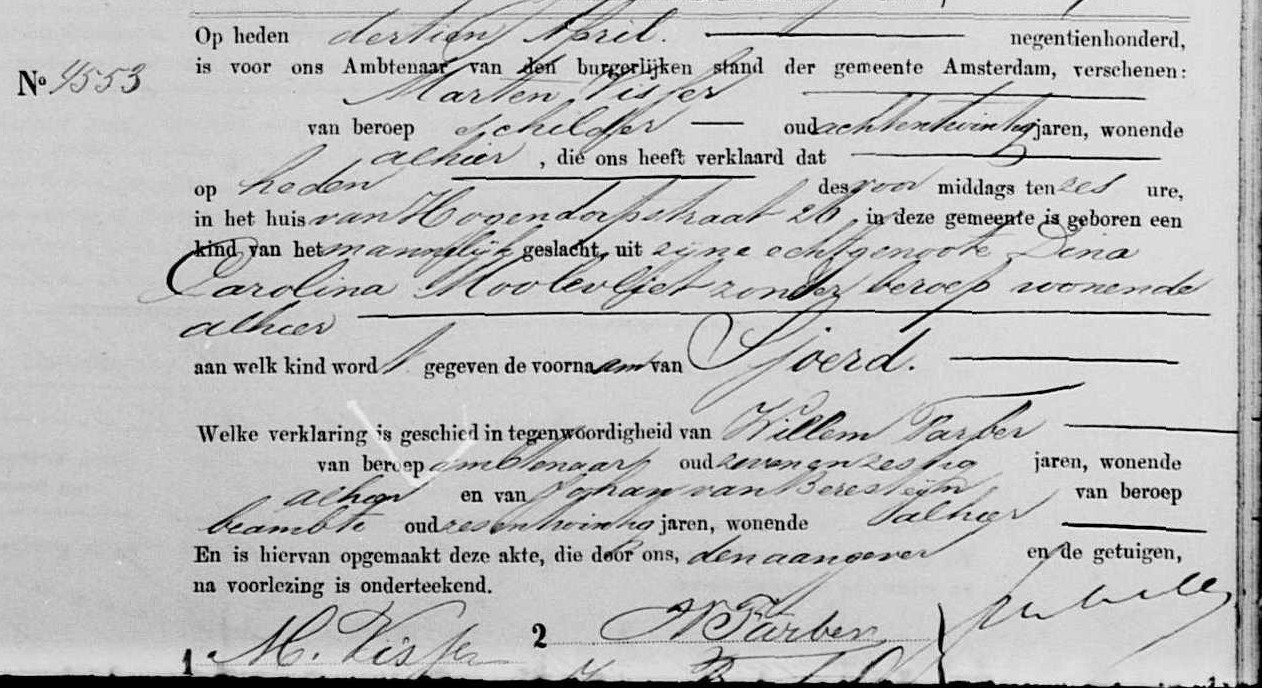 Op heden dertien April. negentienhonderd,
No 4553 is voor ons Ambtenaar van den burgerlijken stand der gemeente Amsterdam, verschenen:
Marten Visser
van beroep Schilder oud achtentwintig jaren, wonende
alhier , die ons heeft verklaard dat
op heden des voor middags ten zes ure,
in het huis van Hogendorpstraat 26, in deze gemeente is geboren een
kind van het mannelijk geslacht, uit zijne echtgenoote Dina
Carolina Moolevliet zonder beroep wonende
alhier
aan welk kind word t gegeven de voornaam van Sjoerd.
Welke verklaring is geschied in tegenwoordigheid van Willem Färber
van beroep ambtenaar oud zevenenzestig jaren, wonende
alhier en van Johan van Beresteijn van beroep
beambte oud zesentwintig jaren, wonende alhier
En is hiervan opgemaakt deze akte, die door ons, den aangever en de getuigen,
na voorlezing is onderteekend.
1 M. Visser 2 W Färber